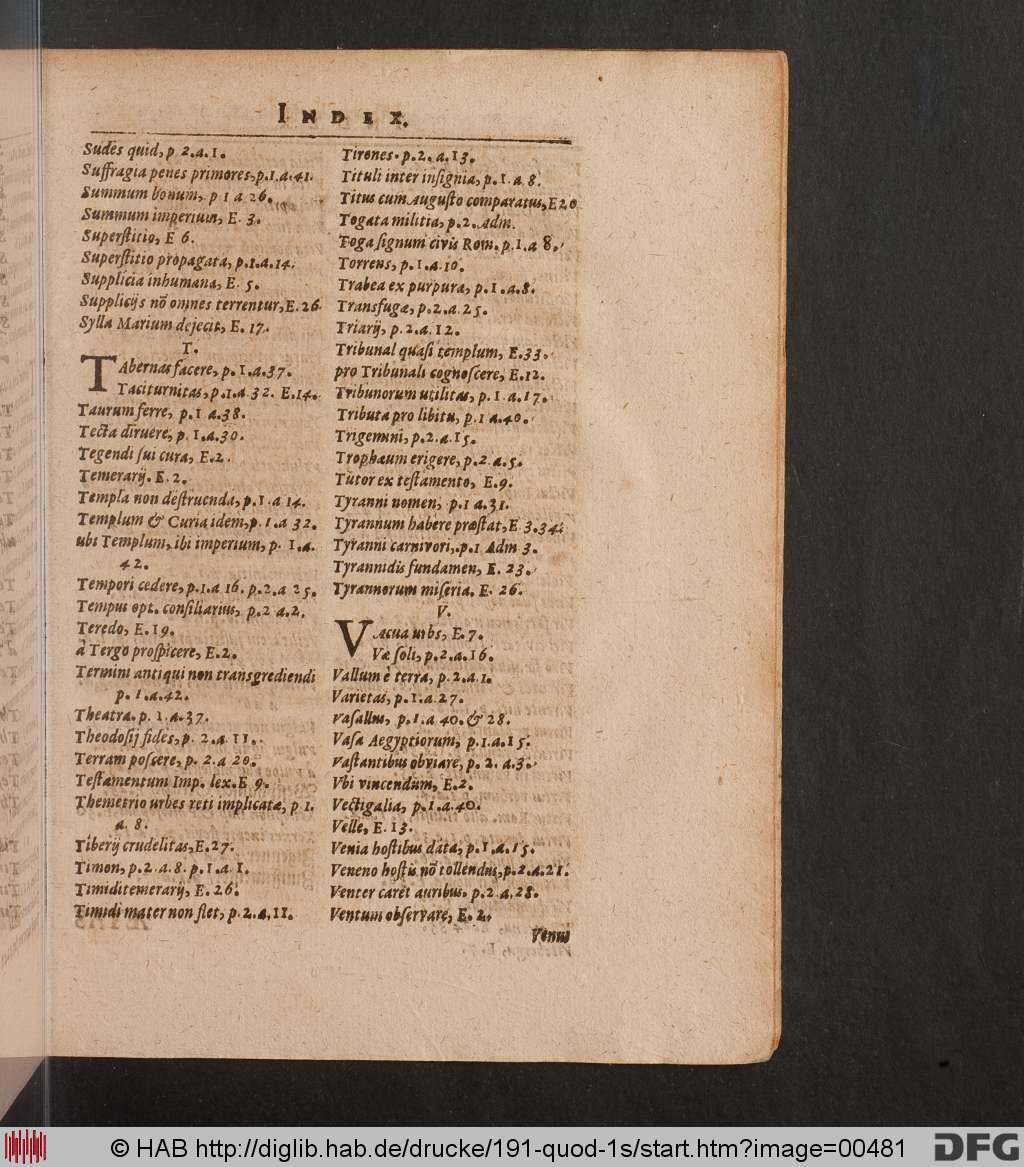 INDEX.
Sudes quid, p 2.a.1.
Suffragia penes primores, p.1.a.41.
Summum bonum, p 1 a 26.
Summum imperium, E. 3.
Superſtitio, E 6.
Superſtitio propagata, p.1.a.14.
Supplicia inhumana, E. 5.
Supplicijs nō omnes terrentur, E. 26.
Sylla Marium dejecit, E. 17.
T.
TAbernas facere, p. 1.a.37.
Taciturnitas, p.1.a 32. E.14.
Taurum ferre, p.1 a.38.
Tecta diruere, p. 1.a.30.
Tegendi ſui cura, E.2.
Temerarij. E. 2.
Templa non deſtruenda, p.1.a 14.
Templum & Curia idem, p. 1.a 32.
ubi Templum, ibi imperium, p. 1.a.
42.
Tempori cedere, p.1.a 16. p.2.a 25.
Tempus opt. conſiliarius, p.2 a.2.
Teredo, E.19.
à Tergo proſpicere, E.2.
Termini antiqui non transgrediendi
p. 1.a.42.
Theatra. p. 1.a.37.
Theodoſij fides, p. 2.a.11.
Terram poſcere, p. 2.a 20.
Teſtamentum Imp. lex. E 9.
Themetrio urbes reti implicatæ, p 1.
a. 8.
Tiberij crudelitas, E.27.
Timon, p.2.a.8. p.1.a.1.
Timidi temerarij, E. 26.
Timidi mater non flet, p.2.a.11.
Tirones. p.2.a.13.
Tituli inter inſignia, p.1.a 8.
Titus cum Auguſto comparatus, E 20
Togata militia, p.2. Adm.
Toga ſignum civis Rom. p.1.a 8.
Torrens, p.1.a.10.
Trabea ex purpura, p.1.a.8.
Transfugæ, p.2.a.25.
Triarij, p.2.a.12.
Tribunal quaſi templum, E.33.
pro Tribunali cognoſcere, E.12.
Tribunorum utilitas, p.1.a.17.
Tributa pro libitu, p.1 a.40.
Trigemini, p.2.a.15.
Trophæum erigere, p.2.a.5.
Tutor ex teſtamento, E.9.
Tyranni nomen, p.1 a.31.
Tyrannum habere præſtat, E 3.34.
Tyranni carnivori, p.1 Adm 3.
Tyrannidis fundamen, E. 23.
Tyrannorum miſeria. E. 26.
V.
VAcua urbs, E.7.
Væ ſoli, p.2.a.16.
Vallum è terra, p.2.a.1.
Varietas, p.1.a.27.
vaſallus, p.1.a 40. & 28.
Vaſa Aegyptiorum, p.1.a.15.
vaſtantibus obviare, p. 2. a.3.
Vbi vincendum, E.2.
Vectigalia, p.1.a.40.
Velle, E. 13.
Venia hoſtibus data, p.1.a.15.
Veneno hoſtis nō tollendus, p.2.a.21.
Venter caret auribus. p.2.a.28.
Ventum obſervare, E. 2.
Venus
© HAB http://diglib.hab.de/drucke/191-quod-1s/start.htm?image=00481
DFG